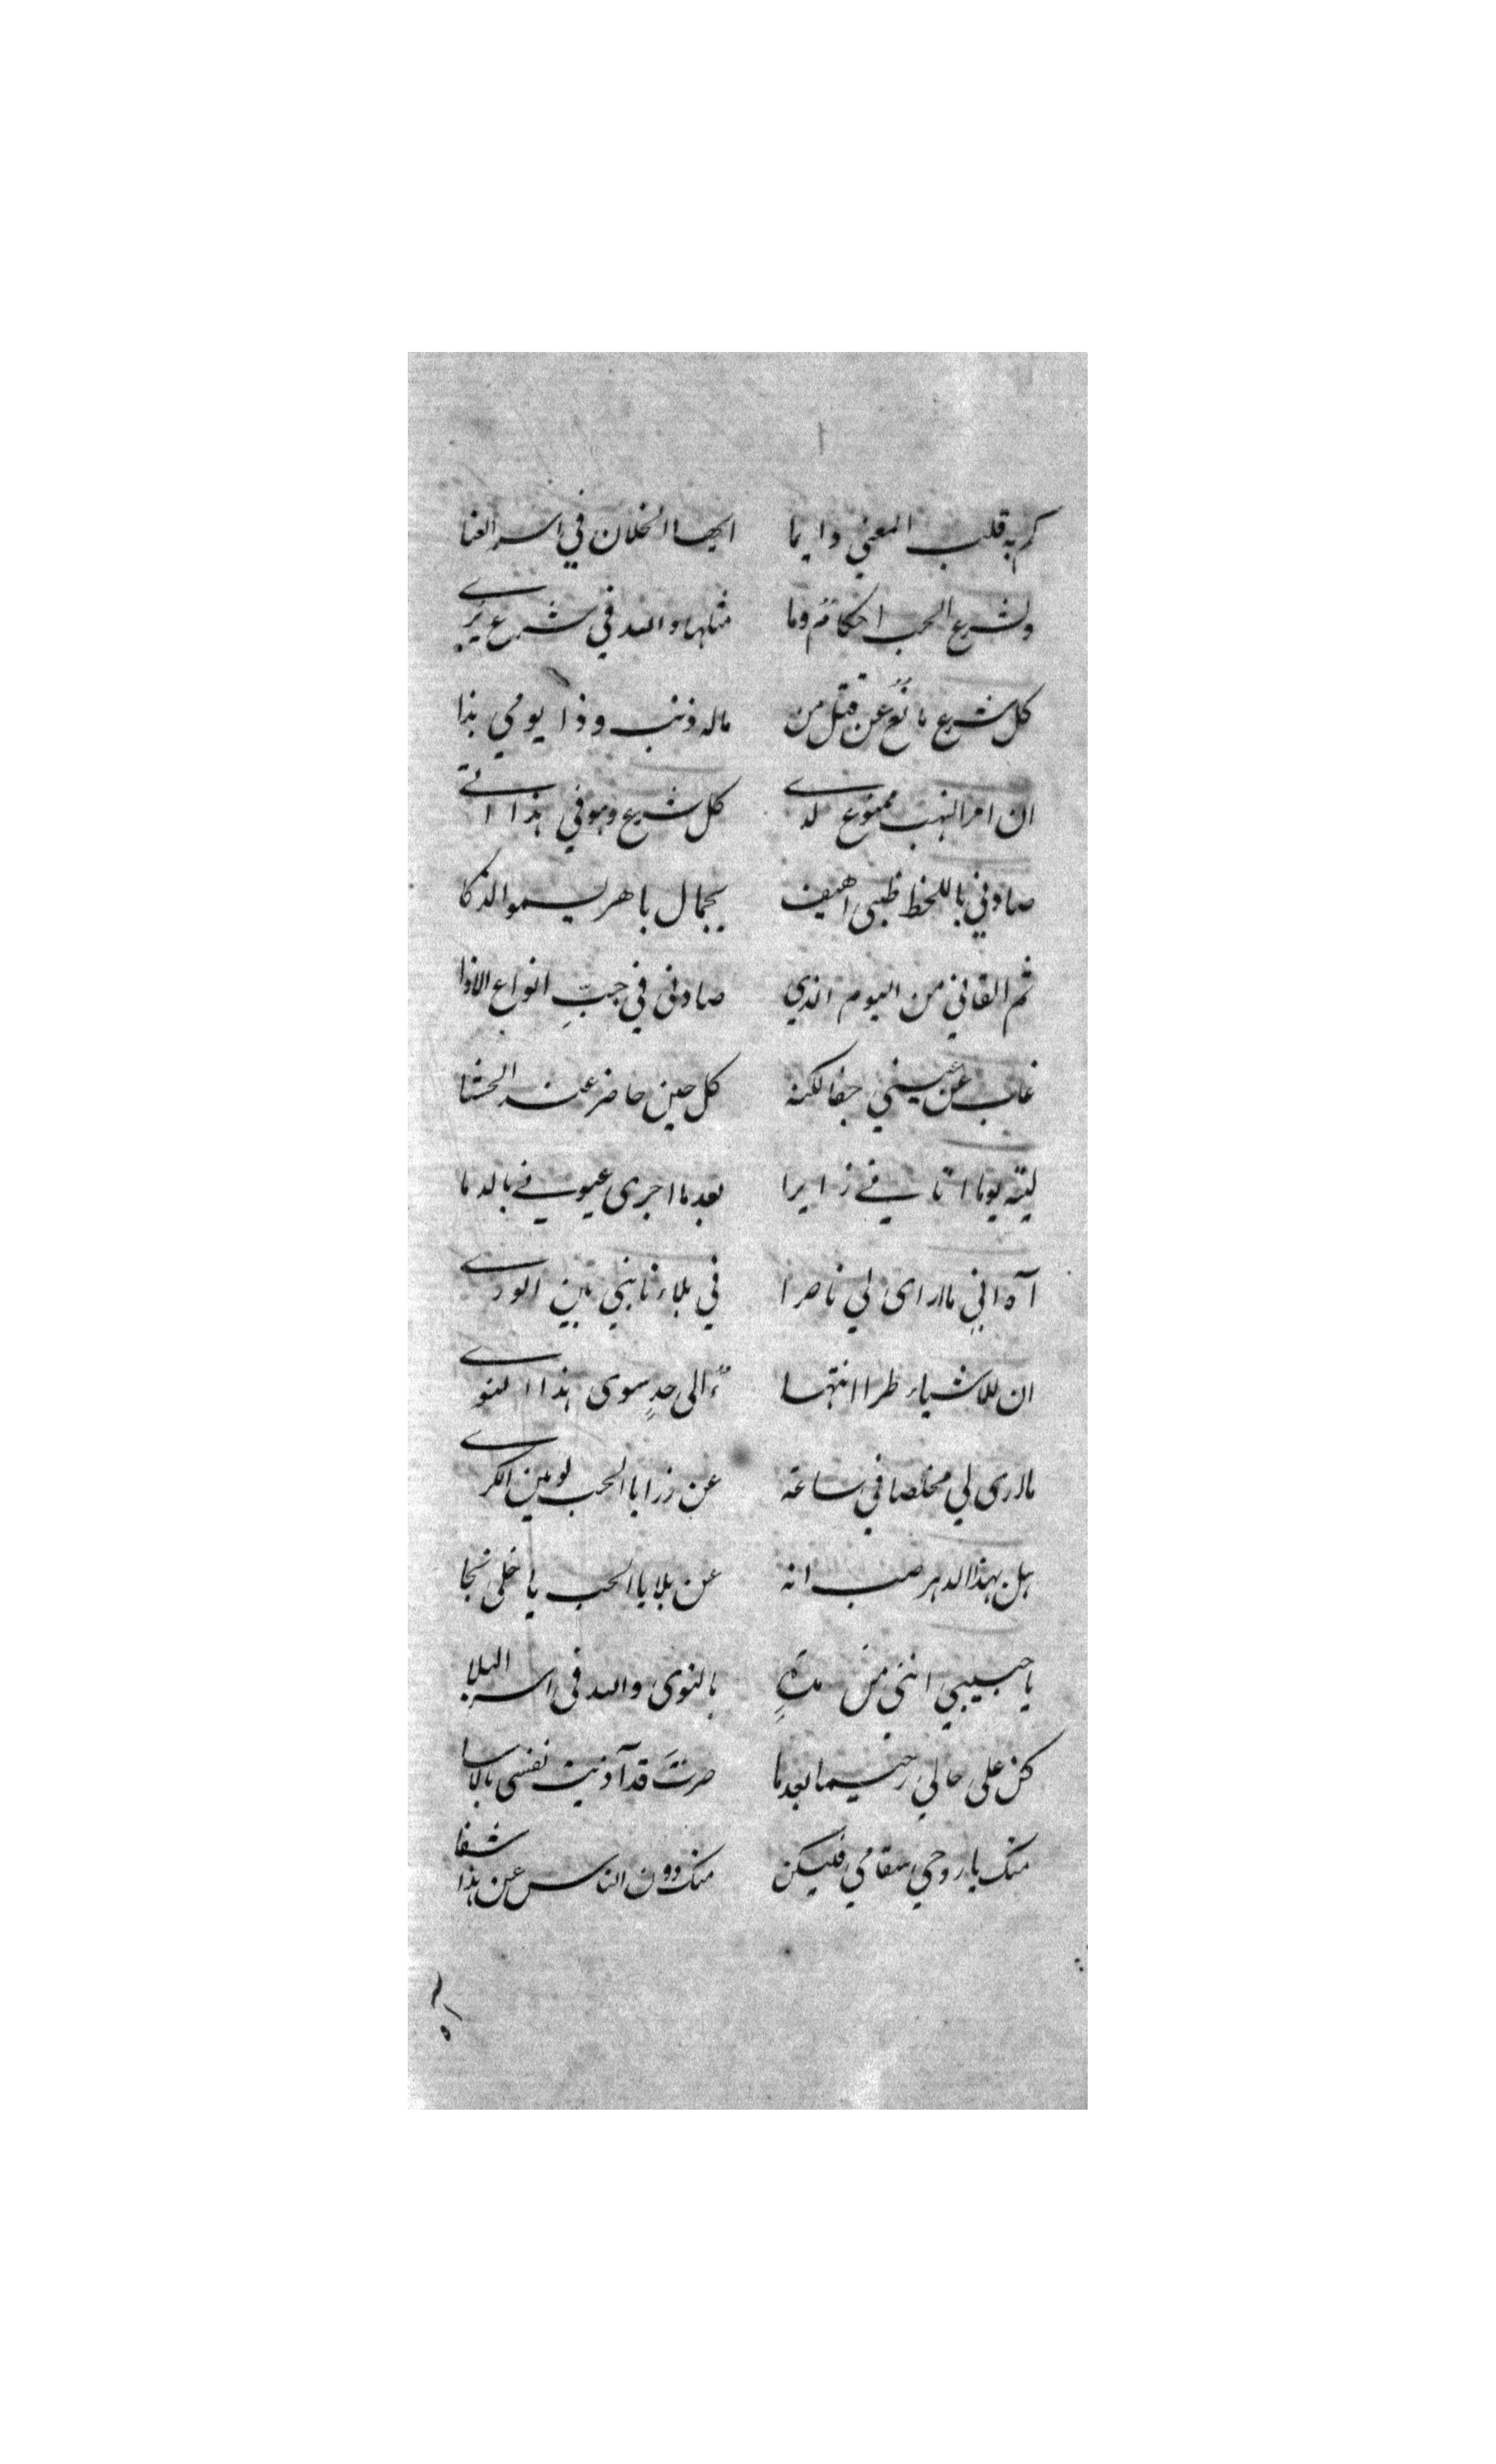 كم به قلب المعنى دايما ايها الخلان في اسر العنا
ولشرع الحب احكام وما مثلها والله في شرع يرى
كل شرع مانع عن قتل من ماله ذنب وذا يومي بذا
ان امر النهب ممنوع لدى كل شرع وهو في هذا اتى
صادني باللحظ ظبي اهيف بجمال باهر يسمو الذكا
ثم القاني من اليوم الذي صادني في جبِّ انواع الاذا
غاب عن عيني جفا لكنه كل حين حاضر عند الحشا
ليته يوما اتاني زايرا بعد ما اجرى عيوني بالدما
آه اني ما ارى لي ناصرا في بلاء نابني بين الورى
ان للاشياء طرا انتها ءً الى حدٍ سوى هذا النوى
ما ارى لي مخلصا في ساعة عن رزايا الحب لو مين الكرى
هل بهذا الدهر صب انه عن بلايا الحب يا خلي نجا
يا حبيبي انني من مدةٍ بالنوى والله في اسر البلا
كن على حالي رحيما بعد ما صرتَ قد آذيت نفسي بالاسا
منك يا روحي سقامي فليكن منك دون الناس عن هذا شفا